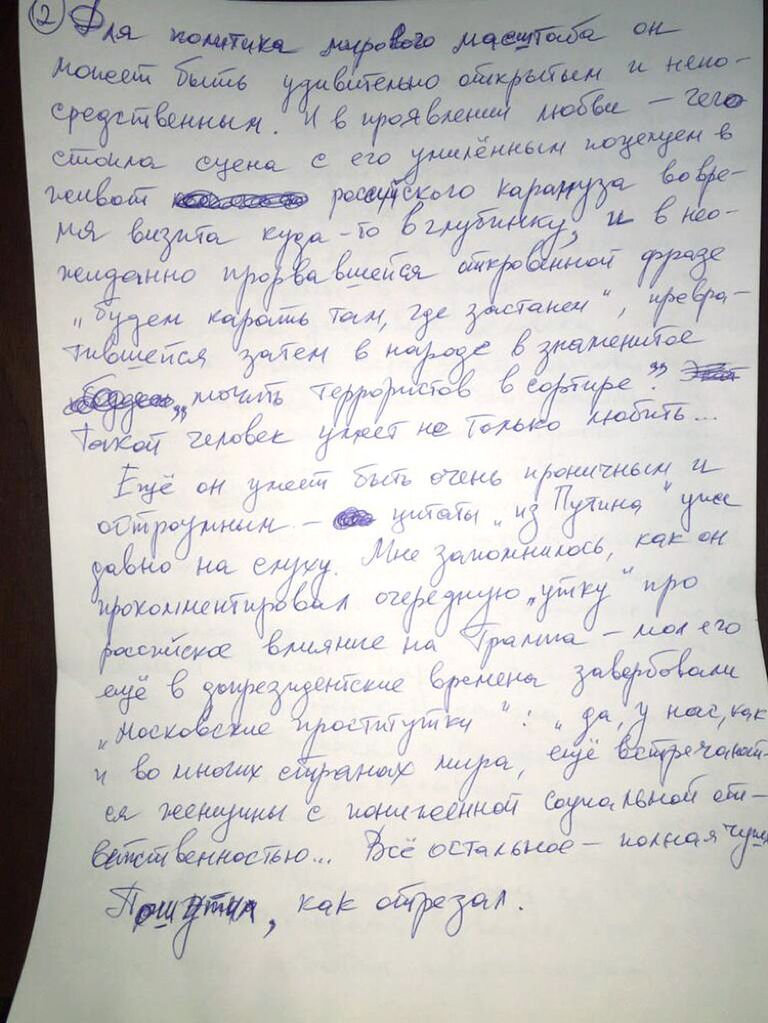 2 Для политика мирового масштаба он
может быть удивительно открытым и непо-
средственным. И в проявлении любви – чего
стоила сцена с его умилённым поцелуем в
живот российского карапуза во вре-
мя визита куда-то в глубинку, и в нео-
жиданно прорвавшейся откровенной фразе
„будем карать там, где застанем", превра-
тившейся затем в народе в знаменитое
„мочить террористов в сортире".
Такой человек умеет не только любить...
Ещё он умеет быть очень ироничным и
остроумным – цитаты „из Путина" уже
давно на слуху. Мне запомнилось, как он
прокомментировал очередную „утку" про
российское влияние на Трампа – мол его
ещё в допрезидентские времена завербовали
„московские проститутки": „да, у нас, как
и во многих странах мира, ещё встречают-
ся женщины с пониженной социальной от-
ветственностью... Всё остальное – полная чушь
Пошутил, как отрезал.